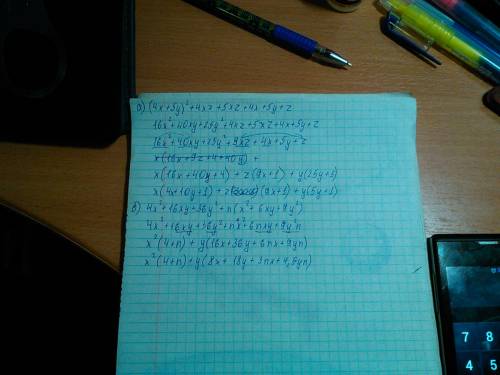 а) (4x+5y)²+4xz+5xz+4x+5y+z
16x²+40xy+25y²+4xz+5xz+4x+5y+z
16x²+40xy+25y²+9xz+4x+5y+z
x(16x+9z+4+40y)+
x(16x+40y+4)+z(9x+1)+y(25y+5)
x(4x+10y+1)+z(9x+1)+y(5y+1)
б) 4x²+16xy+36y²+n(x²+6xy+9y²)
4x²+16xy+36y²+nx²+6nxy+9y²n
x²(4+n)+y(16x+36y+6nx+9yn)
x²(4+n)+y(8x+18y+3nx+4,5yn)
7 8
4 5